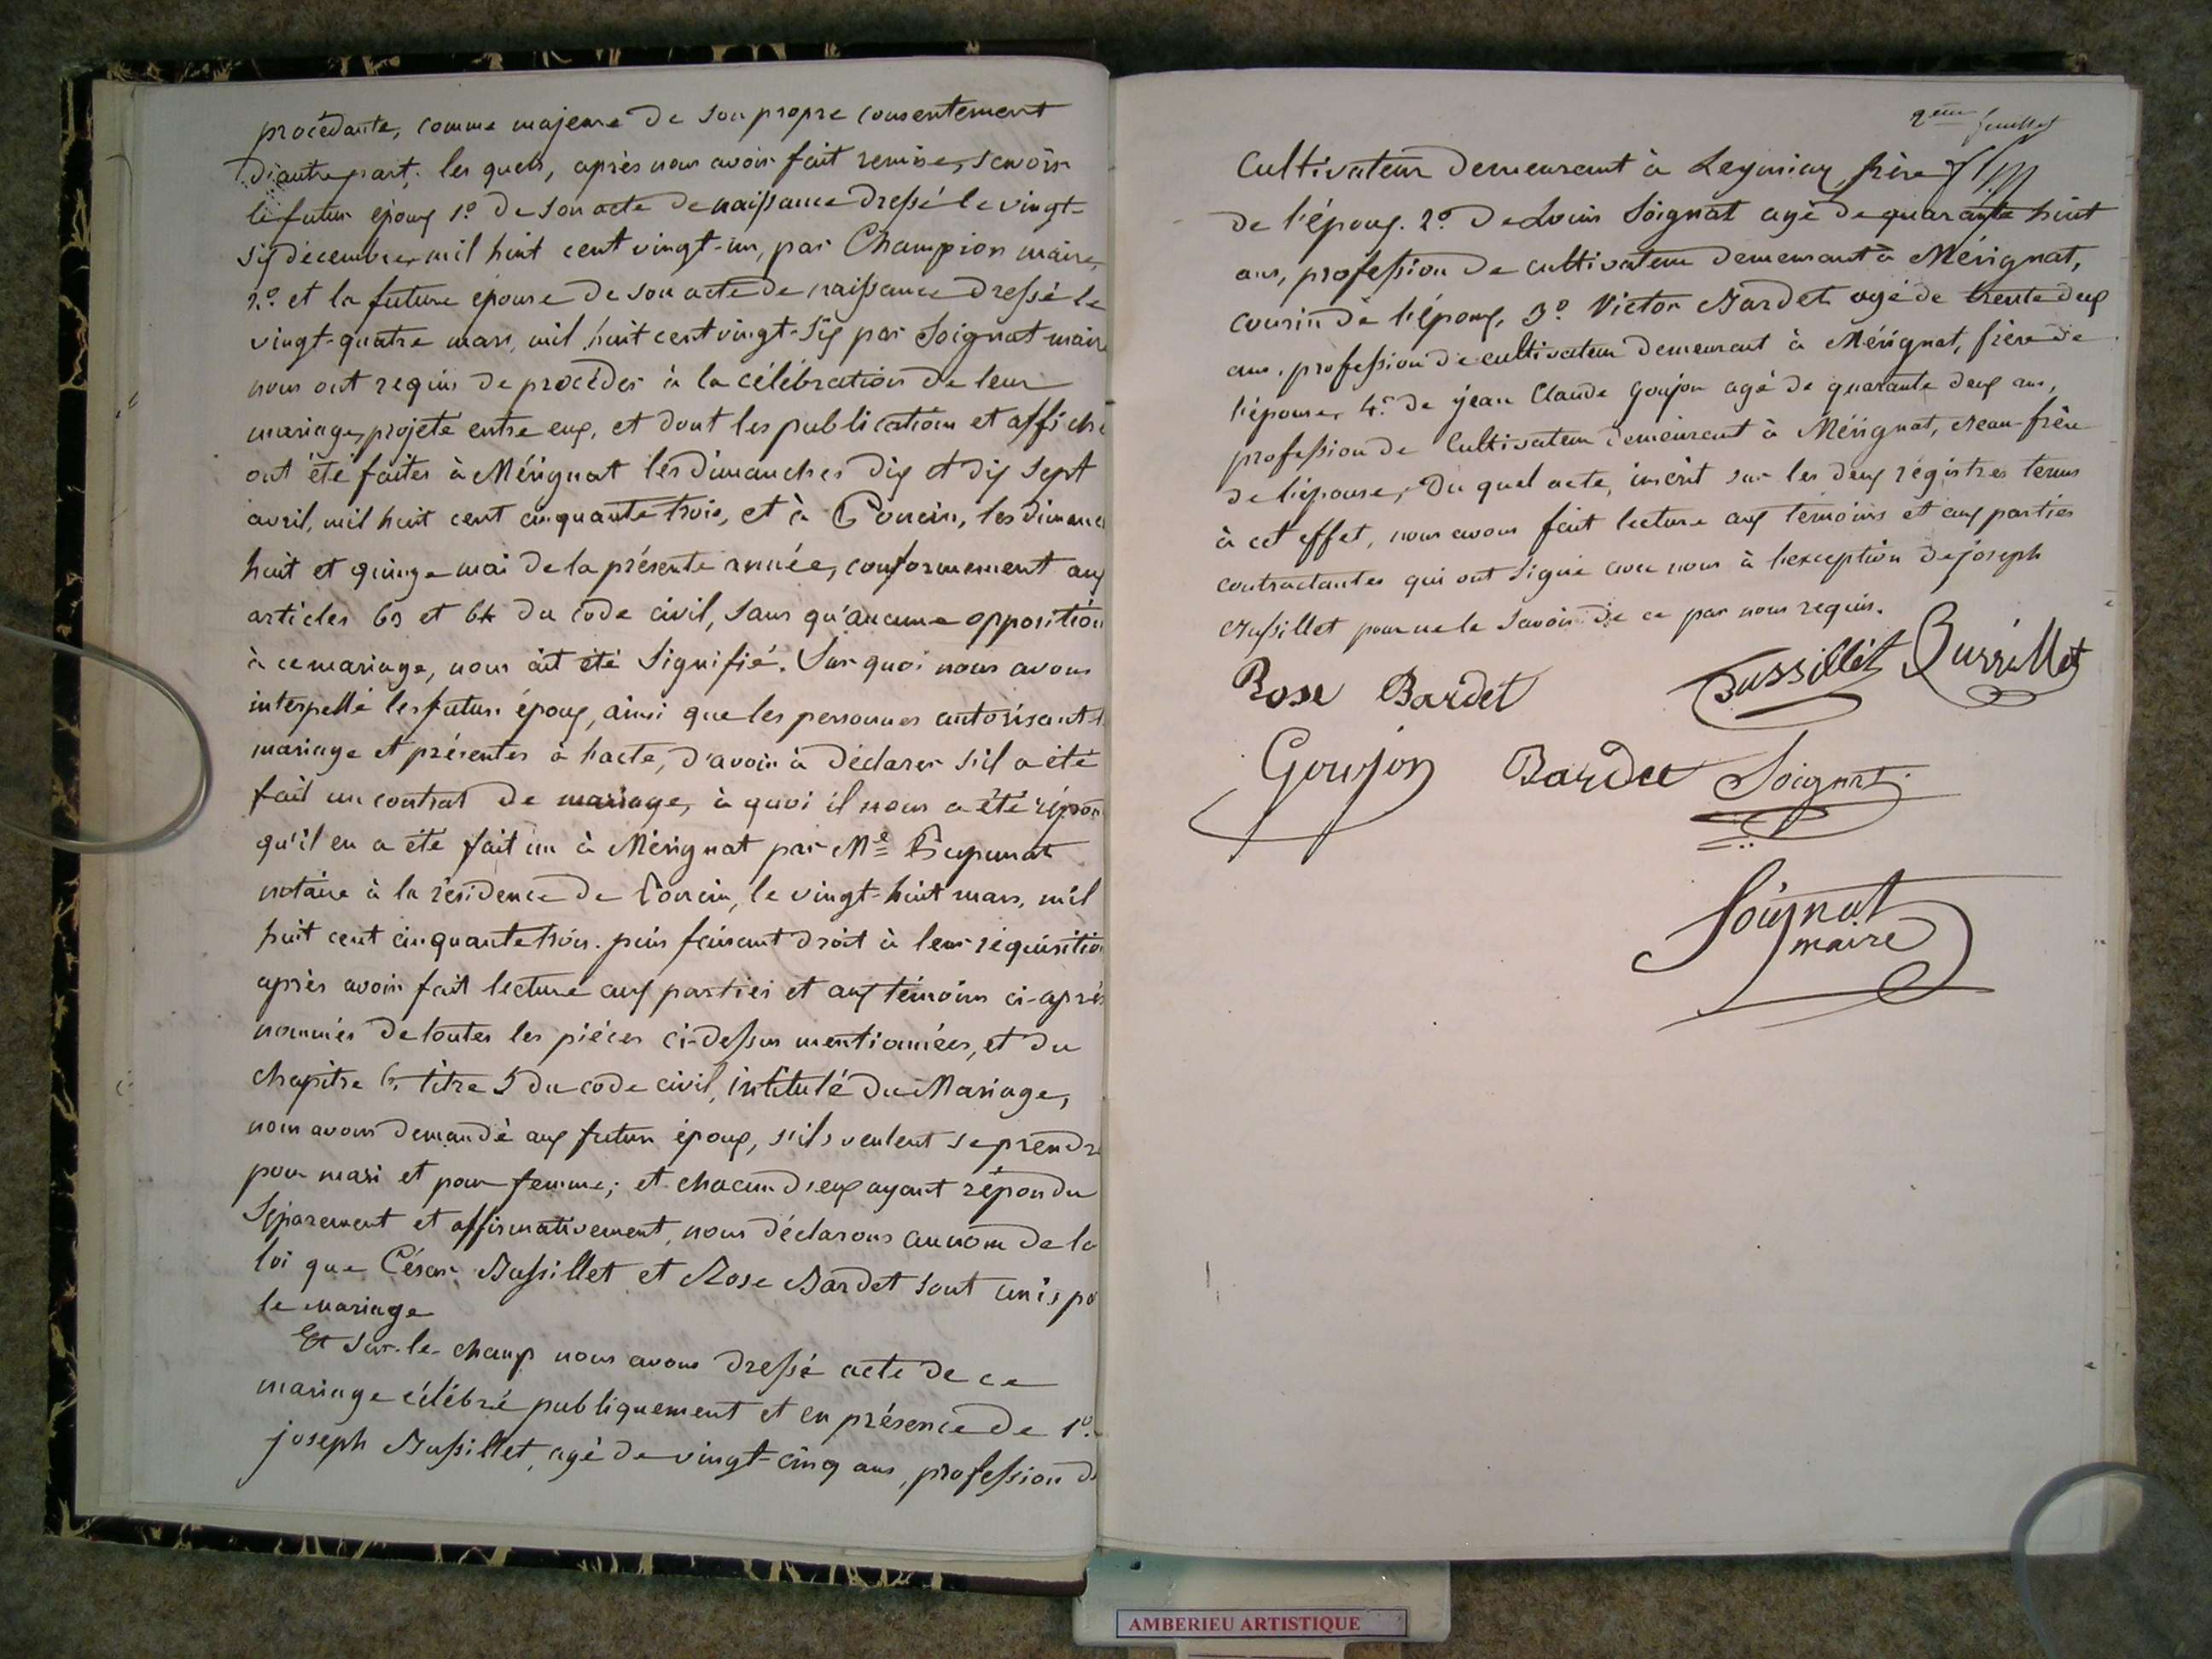 procédante, comme majeure de son propre consentement
d'autre part; les quels, après nous avoir fait remise, savoir
le futur époux 1º de son acte de naissance dressé le vingt-
six décembre, mil huit cent vingt-un, par Champion maire,
2º et la future épouse de son acte de naissance dressé le
vingt-quatre mars, mil huit cent vingt-six par Soignat maire
nous ont requis de procéder à la célébration de leur
mariage, projeté entre eux, et dont les publications et affiche
ont été faites à Mérignat les dimanches dix et dix sept
avril, mil huit cent cinquante trois, et à Poncin, les dimanc
huit et quinze mai de la présente année, conformement aux
articles 63 et 64 du code civil, sans qu'aucune opposition
à ce mariage, nous ait été signifié. Sur quoi nous avons
interpellé les futurs époux, ainsi que les personnes autorisant
mariage et présentes à l'acte, d'avoir à déclarer s'il a été
fait un contrat de mariage, à quoi il nous a été répon
qu'il en a été fait un à Mérignat par Me
notaire à la résidence de Poncin, le vingt-huit mars, mil
huit cent cinquante trois. puis faisant droit à leur réquisition
après avoir fait lecture aux parties et aux témoins ci-après
nommés de toutes les pièces ci-dessus mentionnées, et du
chapitre 6, titre 5 du code civil, intitulé du Mariage,
nous avons demandé aux futurs époux, s'ils veulent se prendre
pour mari et pour femme; et chacun d'eux ayant répondu
séparement et affirmativement, nous déclarons au nom de la
loi que César Bussillet et Rose Bardet sont unis pa
le mariage
Et sur-le-champ nous avons dressé acte de ce
mariage célébré publiquement et en présence de 1º.
joseph Bussillet, agé de vingt-cinq ans, profession d
2ème feuillet
Cultivateur demeurant à Leymiax, frère
de l'époux. 2º. de Louis Soignat agé de quarante huit
ans, profession de cultivateur demeurant à Mérignat,
cousin de l'époux, 3º Victor Bardet agé de trente deux
ans, profession de cultivateur demeurant à Mérignat, frère de
l'épouse, 4º. de jean Claude Goujon agé de quarante deux ans,
profession de Cultivateur demeurant à Mérignat, beau-frère
de l'épouse, Du quel acte, inscrit sur les deux régistres tenus
à cet effet, nous avons fait lecture aux témoins et aux parties
contractantes qui ont signé avec nous à l'exception de joseph
Bussillet pour ne le savoir de ce par nous requis.
Rose Bardet Bussillet Bussillet
Goujon Bardet Soignat
Soignat
maire
AMBERIEU ARTISTIQUE